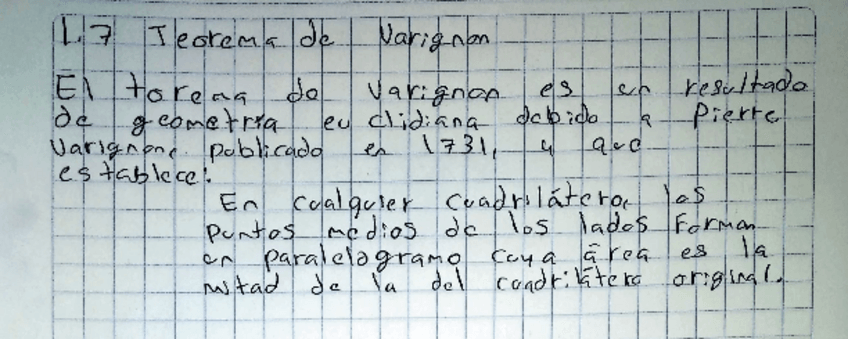 1.7 Teorema de Varignon
El torema de Varignon es un resultado
de geometría euclidiana debido a Pierre
Varignon, publicado en 1731, y que
establece:
En cualquier cuadrilátero, los
puntos medios de los lados forman
un paralelogramo cuya área es la
mitad de la del cuadrilátero original.